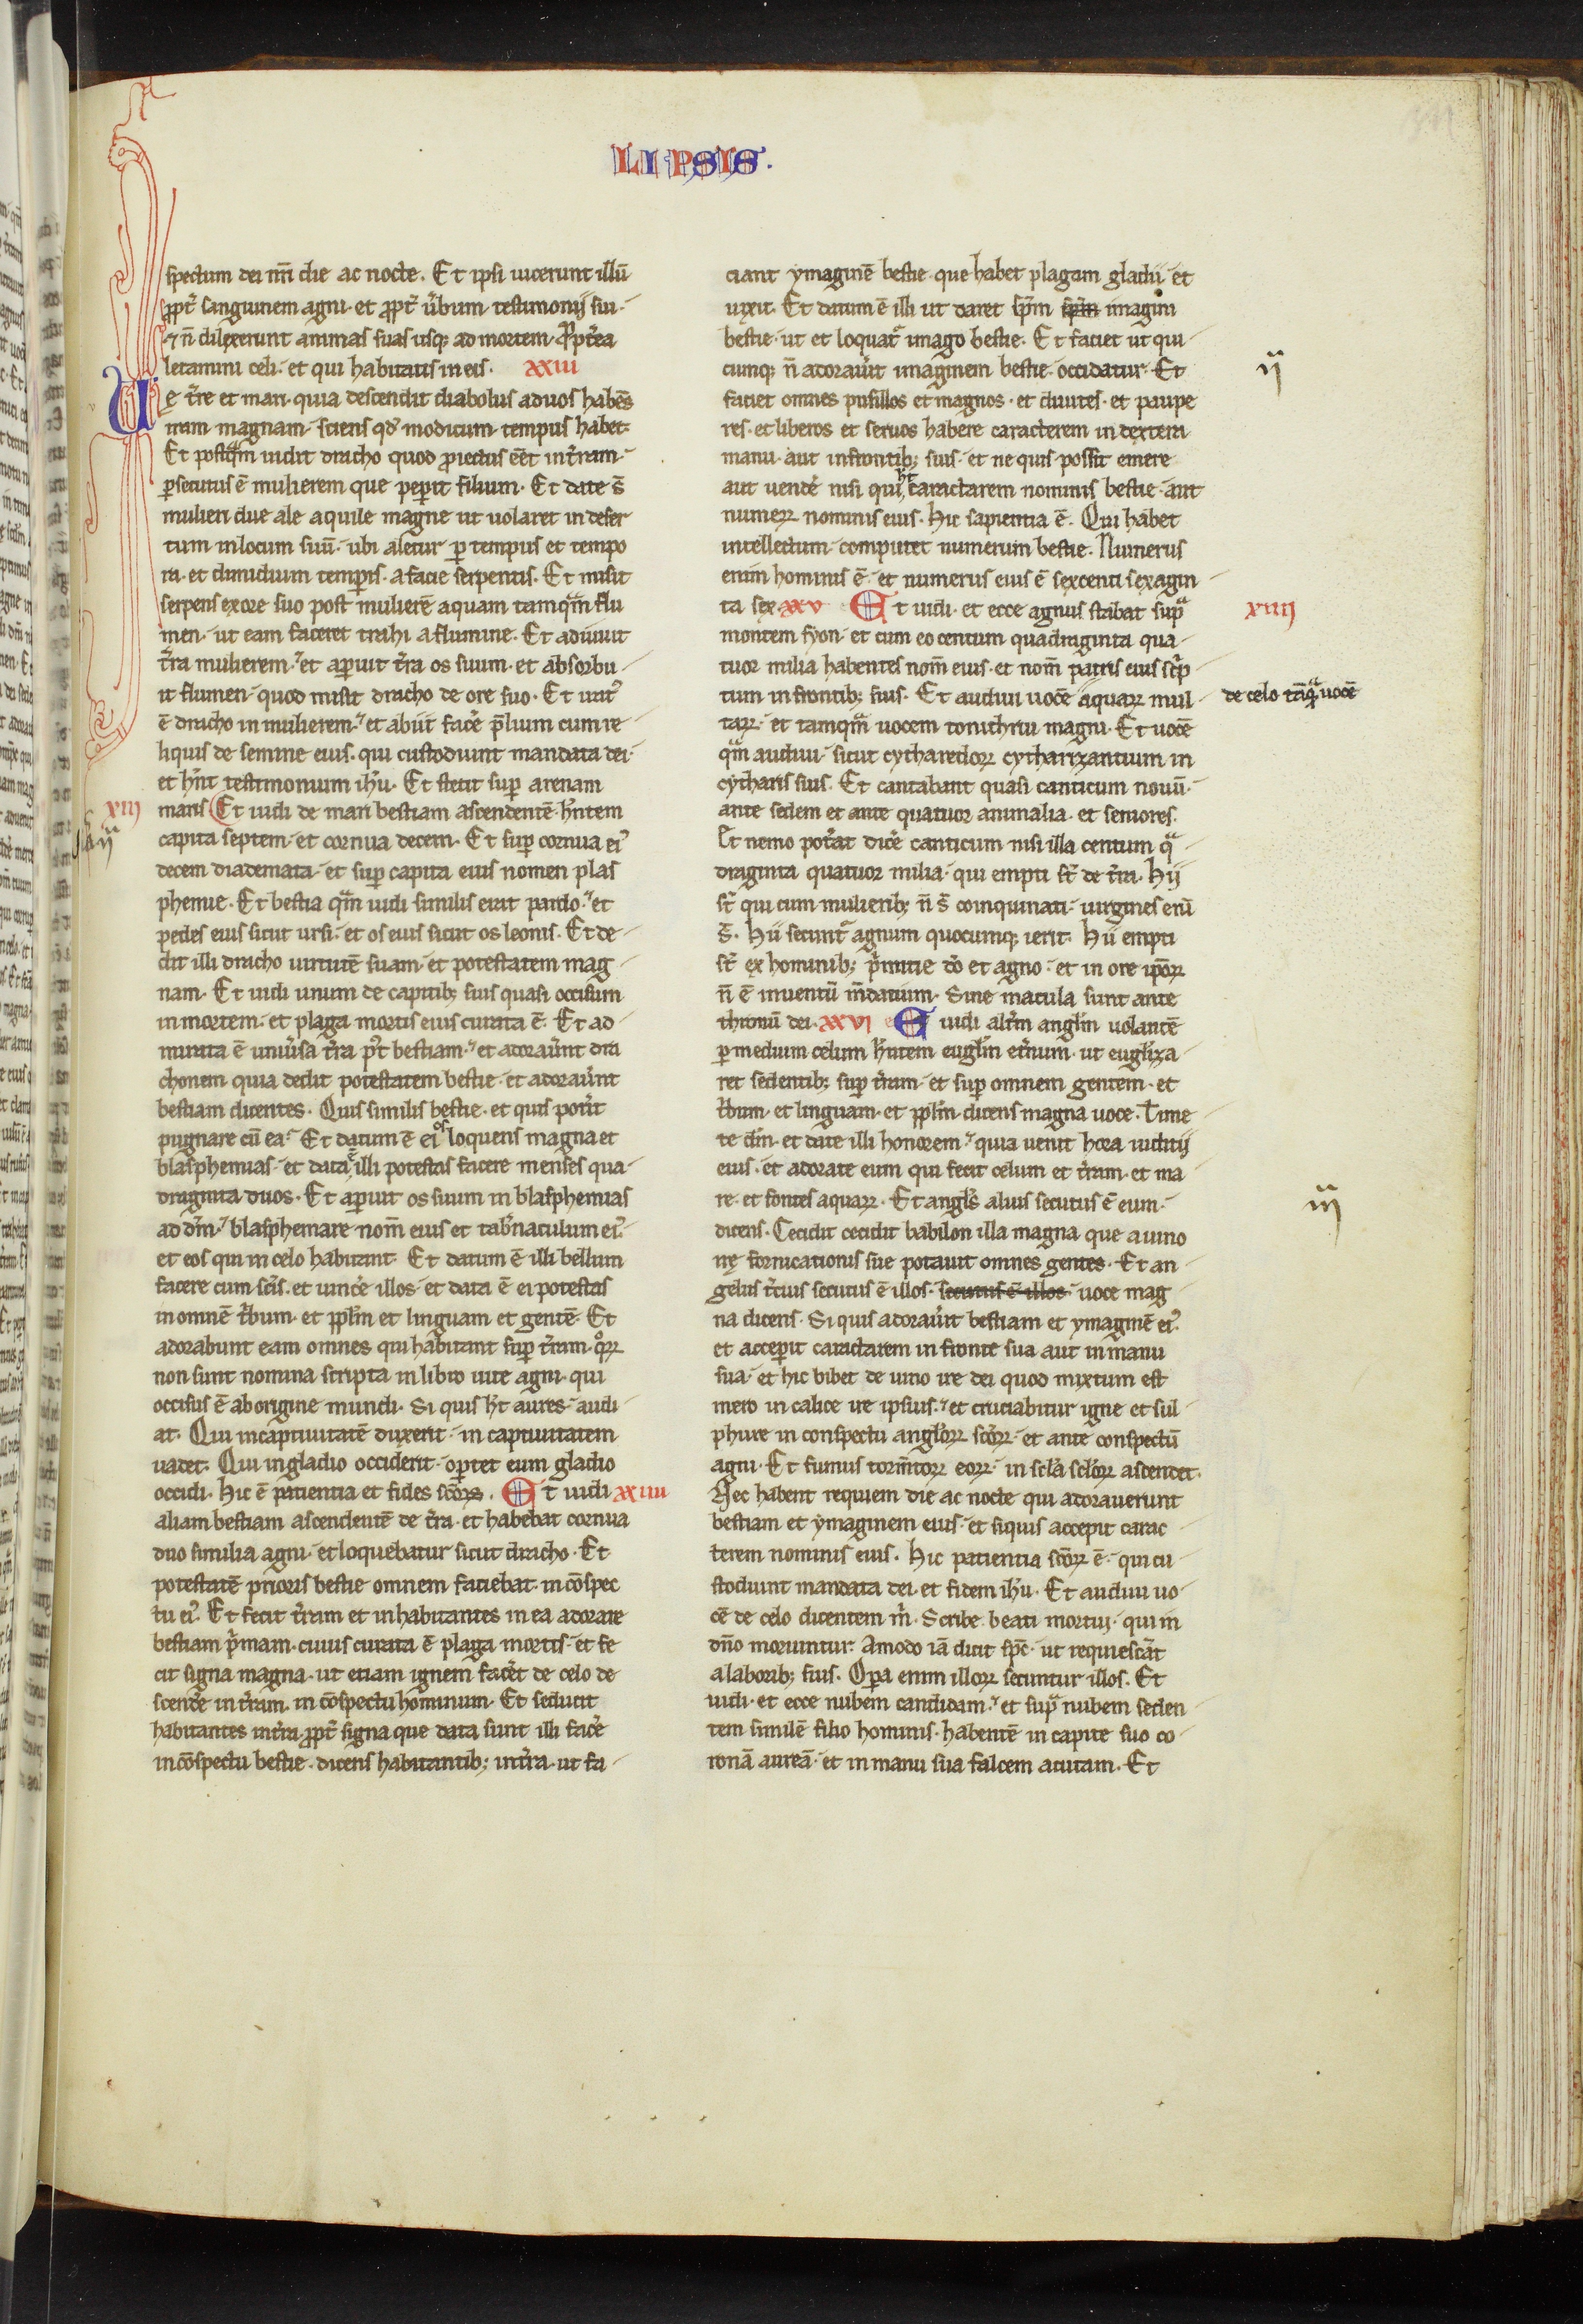 LIPSIS.
spectum dei nr̄i die ac nocte. Et ipsi uicerunt illū
ꝓpt̄ sanguinem agni. et ꝓpt̄ u̓bum testimonij sui.
⁊ n̄ dilexerunt animas suas usq; ad mortem. Ꝓpt̓ea
letamini celi. et qui habitatis in eis. xxiii
Ue t̓re et mari. quia descendit diabolus ad uos habēs
iram magnam. sciens qd̓ modicum tempus habet.
Et postq̄m uidit dracho quod ꝓiectus eēt in t̓ram.
ꝑsecutus ē mulierem que peꝑit filium. Et date s̄
mulieri due ale aquile magne ut uolaret in deser
tum in locum suū. ubi aletur ꝑ tempus et tempo
ra. et dimidium temꝑis. a facie serpentis. Et misit
serpens ex ore suo post mulierē aquam tamq̄m flu
men. ut eam faceret trahi a flumine. Et adiuuit
t̓ra mulierem. et aꝑuit t̓ra os suum. et absorbu
it flumen. quod misit dracho de ore suo. Et irat᾽
ē dracho in mulierem. et abiit fac̓e p̄lium cum re
liquis de semine eius. qui custodiunt mandata dei.
et hn̄t testimonium ih̄u. Et stetit suꝑ arenam
xiij
maris Et uidi de mari bestiam ascendentē. hn̄tem
capita septem. et cornua decem. Et suꝑ cornua ei᾽
decem diademata. et suꝑ capita eius nomen plas
phemie. Et bestia q̄m uidi similis erat pardo. et
pedes eius sicut ursi. et os eius sicut os leonis. Et de
dit illi dracho uirtutē suam. et potestatem mag
nam. Et uidi unum de capitib; suis quasi occisum
in mortem. et plaga mortis eius curata ē. Et ad
mirata ē uniu̓sa t̓ra p̓t bestiam. et adorau̓nt dra
chonem quia dedit potestatem bestie. et adorau̓nt
bestiam dicentes. Quis similis bestie. et quis pot̓it
pugnare cū ea. Et datum ē ei os loquens magna et
blasphemias. et data ē illi potestas facere menses qua
draginta duos. Et aꝑuit os suum in blasphemias
ad dm̄. blasphemare nom̄ eius et tab̓naculum ei᾽.
et eos qui in celo habitant. Et datum ē illi bellum
facere cum scīs. et uinc̓e illos. et data ē ei potestas
in omnē t̓bum. et ppl̓m et linguam et gentē. Et
adorabunt eam omnes qui habitant suꝑ t̓ram. qoꝝ
non sunt nomina scripta in libro uite agni. qui
occisus ē ab origine mundi. Si quis h̄t aures. audi
at. Qui in captiuitatē duxerit. in captiuitatem
uadet. Qui in gladio occiderit. oꝑtet eum gladio
occidi. Hic ē patientia et fides scōꝝ. Et uidi xxiiii
aliam bestiam ascendentē de t̓ra. et habebat cornua
duo similia agni. et loquebatur sicut dracho. Et
potestatē prioris bestie omnem faciebat. in cōspec
tu ei᾽. Et fecit t̓ram et inhabitantes in ea adorare
bestiam p̓mam. cuius curata ē plaga mortis. et fe
cit signa magna. ut etiam ignem fac̓et de celo de
scend̓e in t̓ram. in cōspectu hominum. Et seducit
habitantes in t̓ra ꝓpt̄ signa que data sunt illi fac̓e
in cōspectu bestie. dicens habitantib; in t̓ra. ut fa
ciant ymaginē bestie. que habet plagam gladii. et
uixit. Et datum ē illi ut daret sp̄m sp̄m imagini
bestie. ut et loquat᾽ imago bestie. Et faciet ut qui
cumq; n̄ adorau̓it imaginem bestie. occidatur. Et
ij
faciet omnes pusillos et magnos. et diuites. et paupe
res. et liberos et seruos habere caracterem in dextera
manu. aut in frontib; suis. et ne quis possit emere
aut uend̓e nisi qui h̄t caractarem nominis bestie. aut
numeꝝ nominis eius. Hic sapientia ē. Qui habet
intellectum. computet numerum bestie. Numerus
enim hominis ē. et numerus eius ē sexcenti sexagin
ta sex. xxv Et uidi. et ecce agnus stabat sup̄
xiiij
montem syon. et cum eo centum quadraginta qua
tuor milia habentes nom̄ eius. et nom̄ patris eius sc̓p
tum in frontib; suis. Et audiui uocē aquaꝝ mul
de celo tāq̄ uocē
taꝝ. et tamq̄m uocem tonithrui magni. Et uocē
q̄m audiui. sicut cytharedoꝝ cytharizantium in
cytharis suis. Et cantabant quasi canticum nouū.
ante sedem et ante quatuor animalia. et seniores.
Et nemo pot̓at dic̓e canticum nisi illa centum q̄
draginta quatuor milia. qui empti st̄ de t̓ra. Hij
st̄ qui cum mulierib; n̄ s̄ coinquinati. uirgines eni
s̄. Hii secunt̄ agnum quocumq; ierit. Hii empti
st̄ ex hominib; p̓mitie dō et agno. et in ore ipōꝝ
n̄ ē inuentū m̄datium. Sine macula sunt ante
thronū dei. xxvi Et uidi alt̓m angl̓m uolantē
ꝑ medium celum hn̄tem eugl̓m et̓num. ut eugl̓iza
ret sedentib; suꝑ t̓ram. et suꝑ omnem gentem. et
t̓bum. et linguam. et ppl̓m. dicens magna uoce. Time
te dm̄. et date illi honorem. quia uenit hora iuditij
eius. et adorate eum qui fecit celum et t̓ram. et ma
re. et fontes aquaꝝ. Et angl̓s alius secutus ē eum.
iij
dicens. Cecidit cecidit babilon illa magna que a uino
ne fornicationis sue potauit omnes gentes. Et an
gelus t̓cius secutus ē illos. secutus ē illos. uoce mag
na dicens. Si quis adorau̓it bestiam et ymaginē ei᾽.
et acceꝑit caractarem in fronte sua aut in manu
sua. et hic bibet de uino ire dei quod mixtum est
mero in calice ire ipsius. et cruciabitur igne et sul
phure in conspectu angl̓oꝝ scōꝝ. et ante conspectū
agni. Et fumus torm̄toꝝ eoꝝ. in scl̓a scl̓oꝝ ascendet.
Nec habent requiem die ac nocte qui adorauerunt
bestiam et ymaginem eius. et siquis accepit carac
terem nominis eius. Hic patientia scōꝝ ē. qui cu
stodiunt mandata dei. et fidem ih̄u. Et audiui uo
cē de celo dicentem m̓. Scribe. beati mortui. qui in
dn̄o moriuntur. Amodo iā dicit sp̄c. ut requiescāt
a laborib; suis. Oꝑa enim illoꝝ secuntur illos. Et
uidi. et ecce nubem candidam. et sup̄ nubem seden
tem similē filio hominis. habentē in capite suo co
ronā aureā. et in manu sua falcem acutam. Et